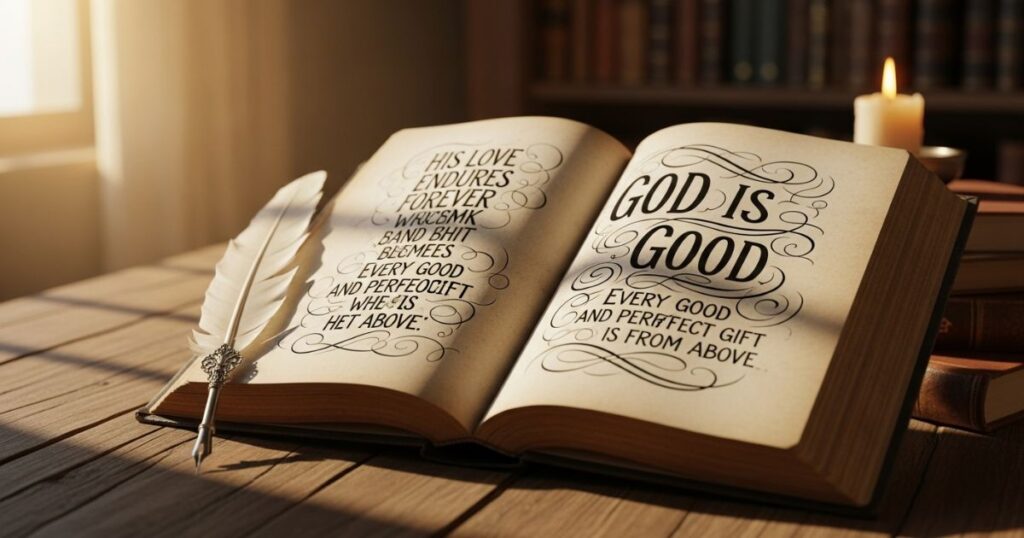 HIS LOVE
ENDURES
FOREVER
WRICBMK
BAND BHIT
BLEMEES
EVERY GOOD
AND PERFEOCIFT
WHE IS
HET ABOVE.
GOD IS
GOOD
EVERY GOOD
AND PERFFECT GIFT
IS FROM ABOVE